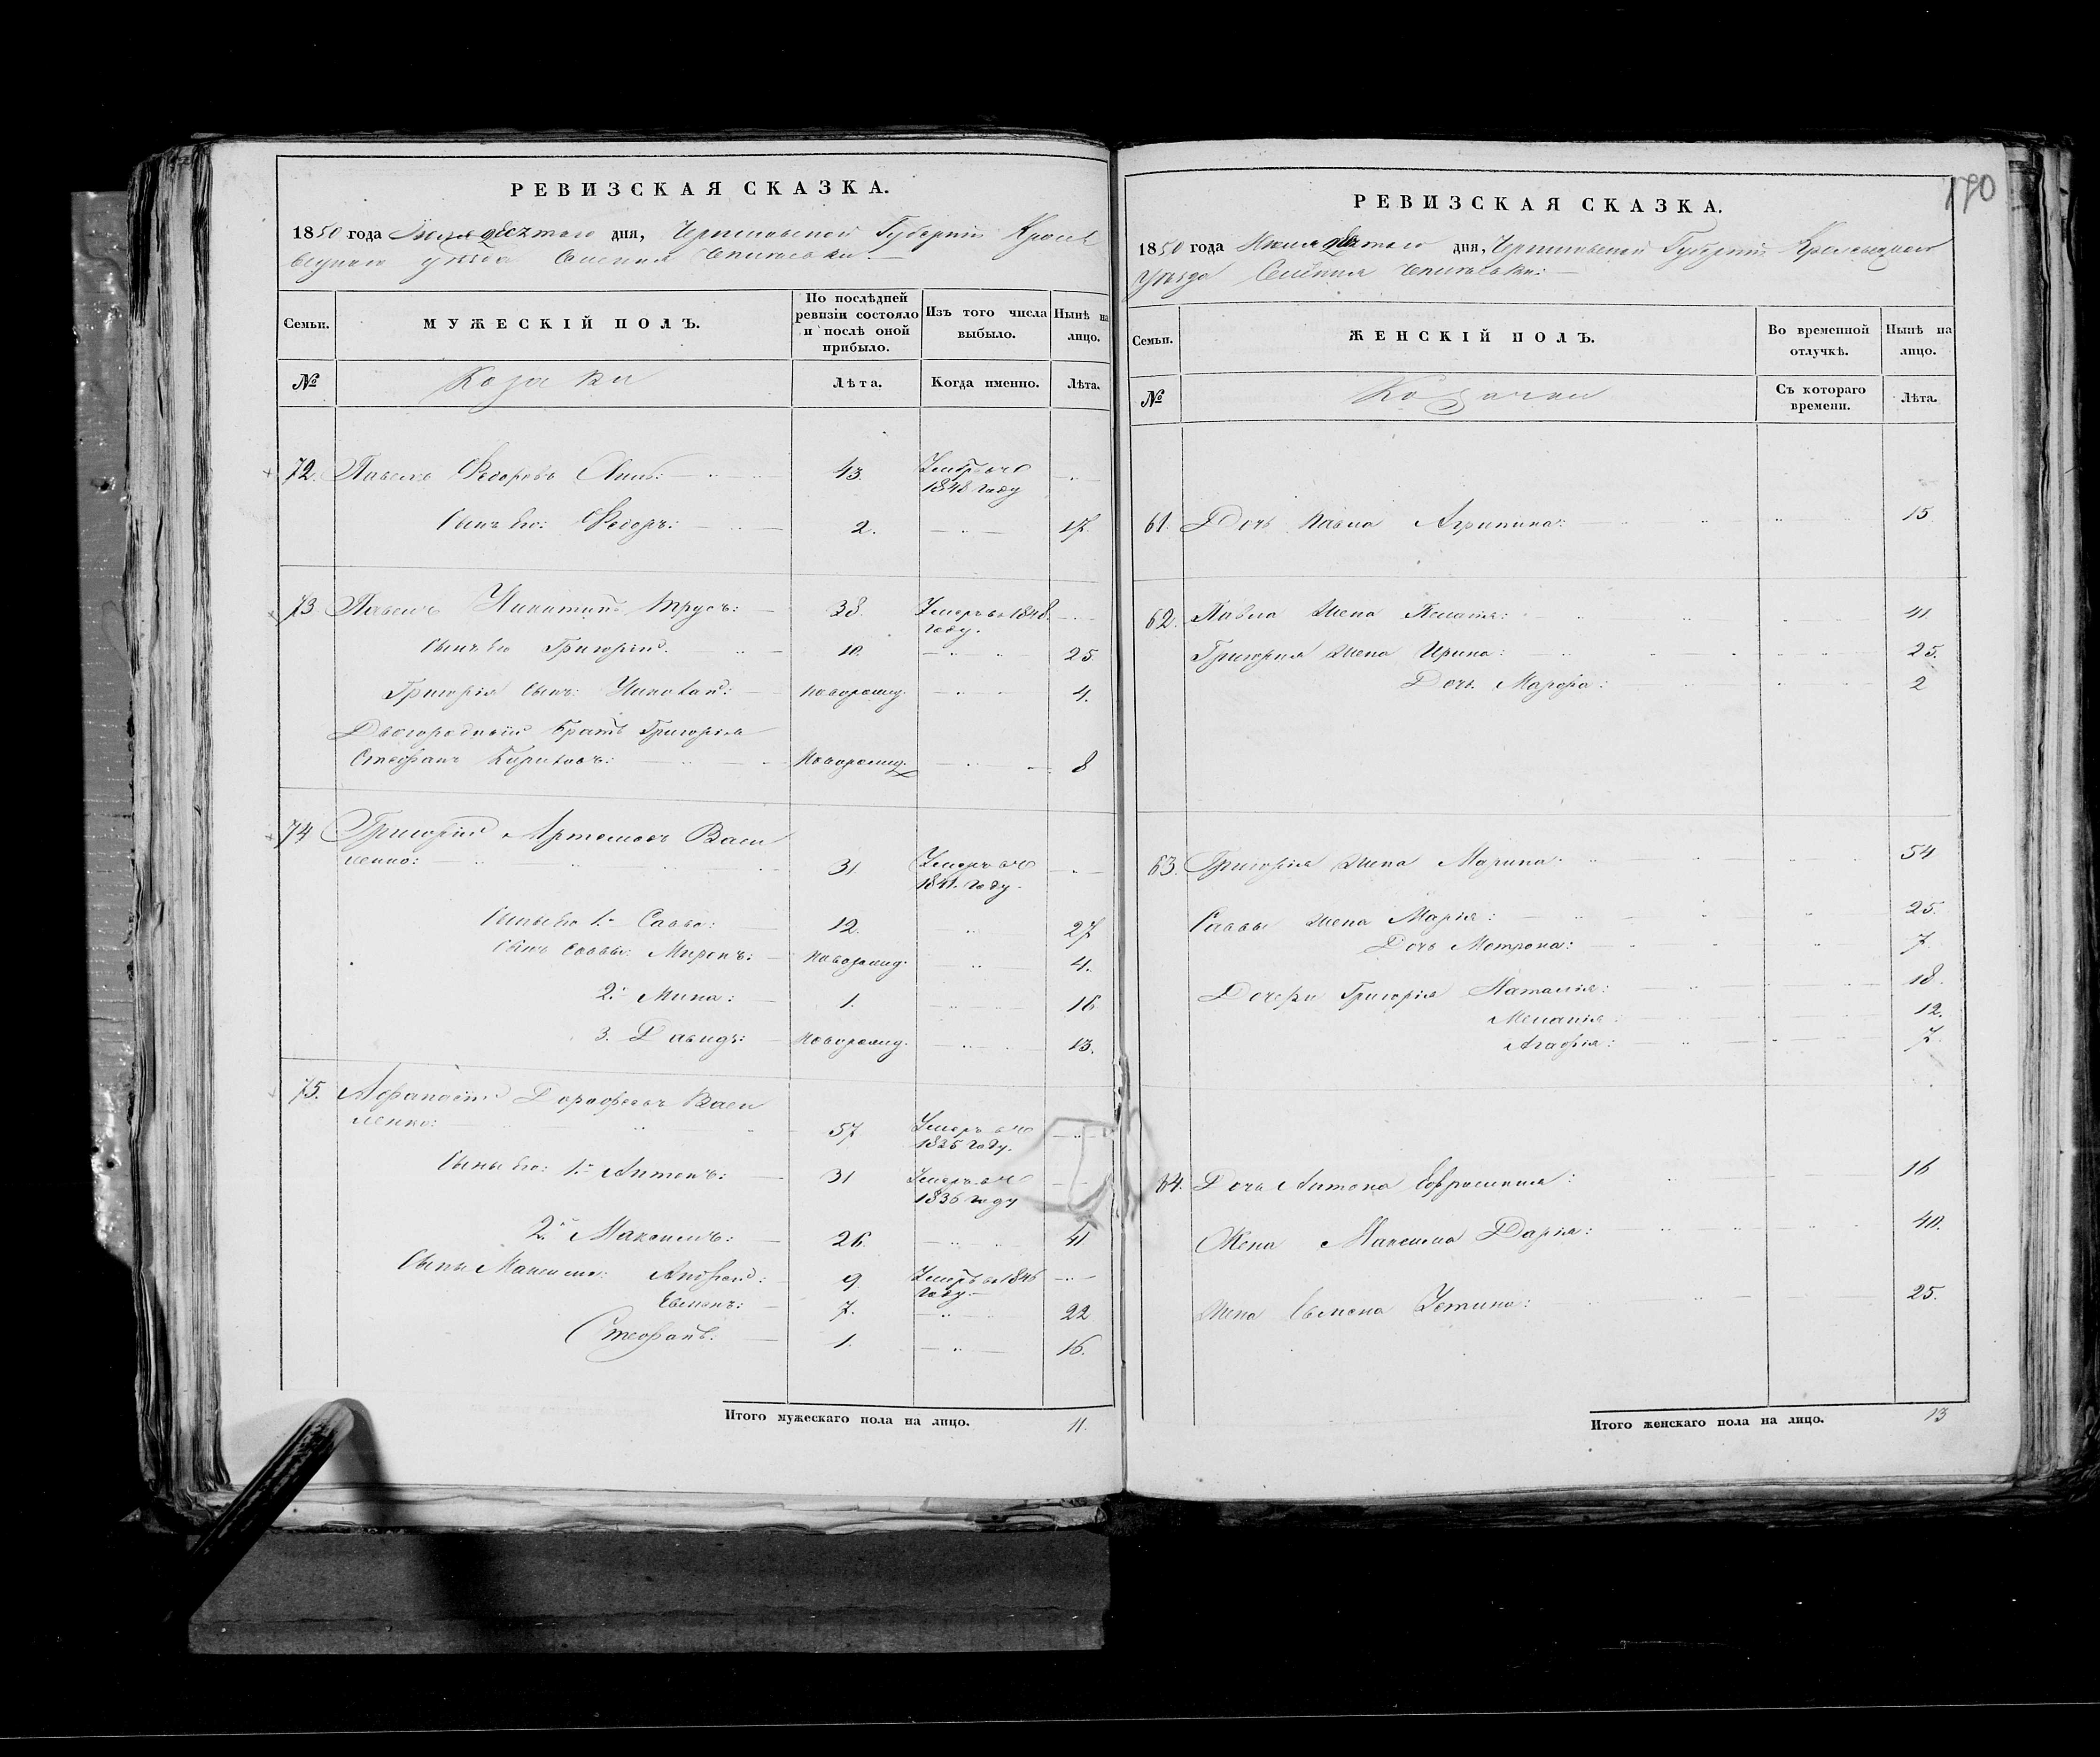 РЕВИЗСКАЯ СКАЗКА.
1850 года Июля десятого дня, Черниговской Губернии Кроле
вецкого уезда Селения
Семьи.
МУЖЕСКІЙ ПОЛЪ.
По послѣдней ревизіи состояло и послѣ оной прибыло.
Изъ того числа выбыло.
Нынѣ на лицо.
№
Козаки
Лѣта.
Когда именно.
Лѣта.
72. Павелъ Федоровъ 43. Умеръ въ 1848 году
Сынъ его: Федоръ: 2. 17.
73 Павелъ Никитинъ Трусъ: 38. Умеръ въ 1848. году.
Сынъ его Григорій. 10. 25
Григорія сынъ: Николай: новорожд. 4.
Двоюродный братъ Григорія
Стефанъ Кириловъ: Новорожд. 8
74 Григорій Артемовъ Васи
ленко: 31 Умеръ въ 1841. году.
Сыны его 1.й Савва: 12. 27
Сынъ Саввы: Миронъ: новорожд. 4.
2.й Мина: 1. 16
3. Давидъ: новорожд. 13.
75. Афанасій Дорофеевъ Васи
ленко: 57 Умеръ въ 1835 году.
Сыны его: 1.й Антонъ: 31 Умеръ въ 1836 году
2.й Максимъ: 26. 41
Сыны Максима: Андрей: 9. Умеръ въ 1846 году.
Евменъ: 7. 22
Стефанъ: 1. 16.
Итого мужескаго пола на лицо. 11.
190
РЕВИЗСКАЯ СКАЗКА.
1850 года Июля десятого дня, Черниговской Губернии Кролевецкого
уезда Селения
Семьи.
ЖЕНСКІЙ ПОЛЪ.
Во временной отлучкѣ.
Нынѣ на лицо.
№
Козачки
Съ котораго времени.
Лѣта.
61. Дочь Павла Агрипина: 15
62. Павла жена 41
Григорія жена Ирина: 25.
Дочь Марфа: 2
63. Григорія жена Марина: 54
Саввы жена Марія: 25.
Дочь Мотрона: 7
Дочери Григорія Наталия: 18.
Меланія: 12.
Агафія: 7.
64. Дочь Антона Евфросиния: 16
Жена Максима Дарія: 40.
Жена Евмена Устина: 25.
Итого женскаго пола на лицо. 13